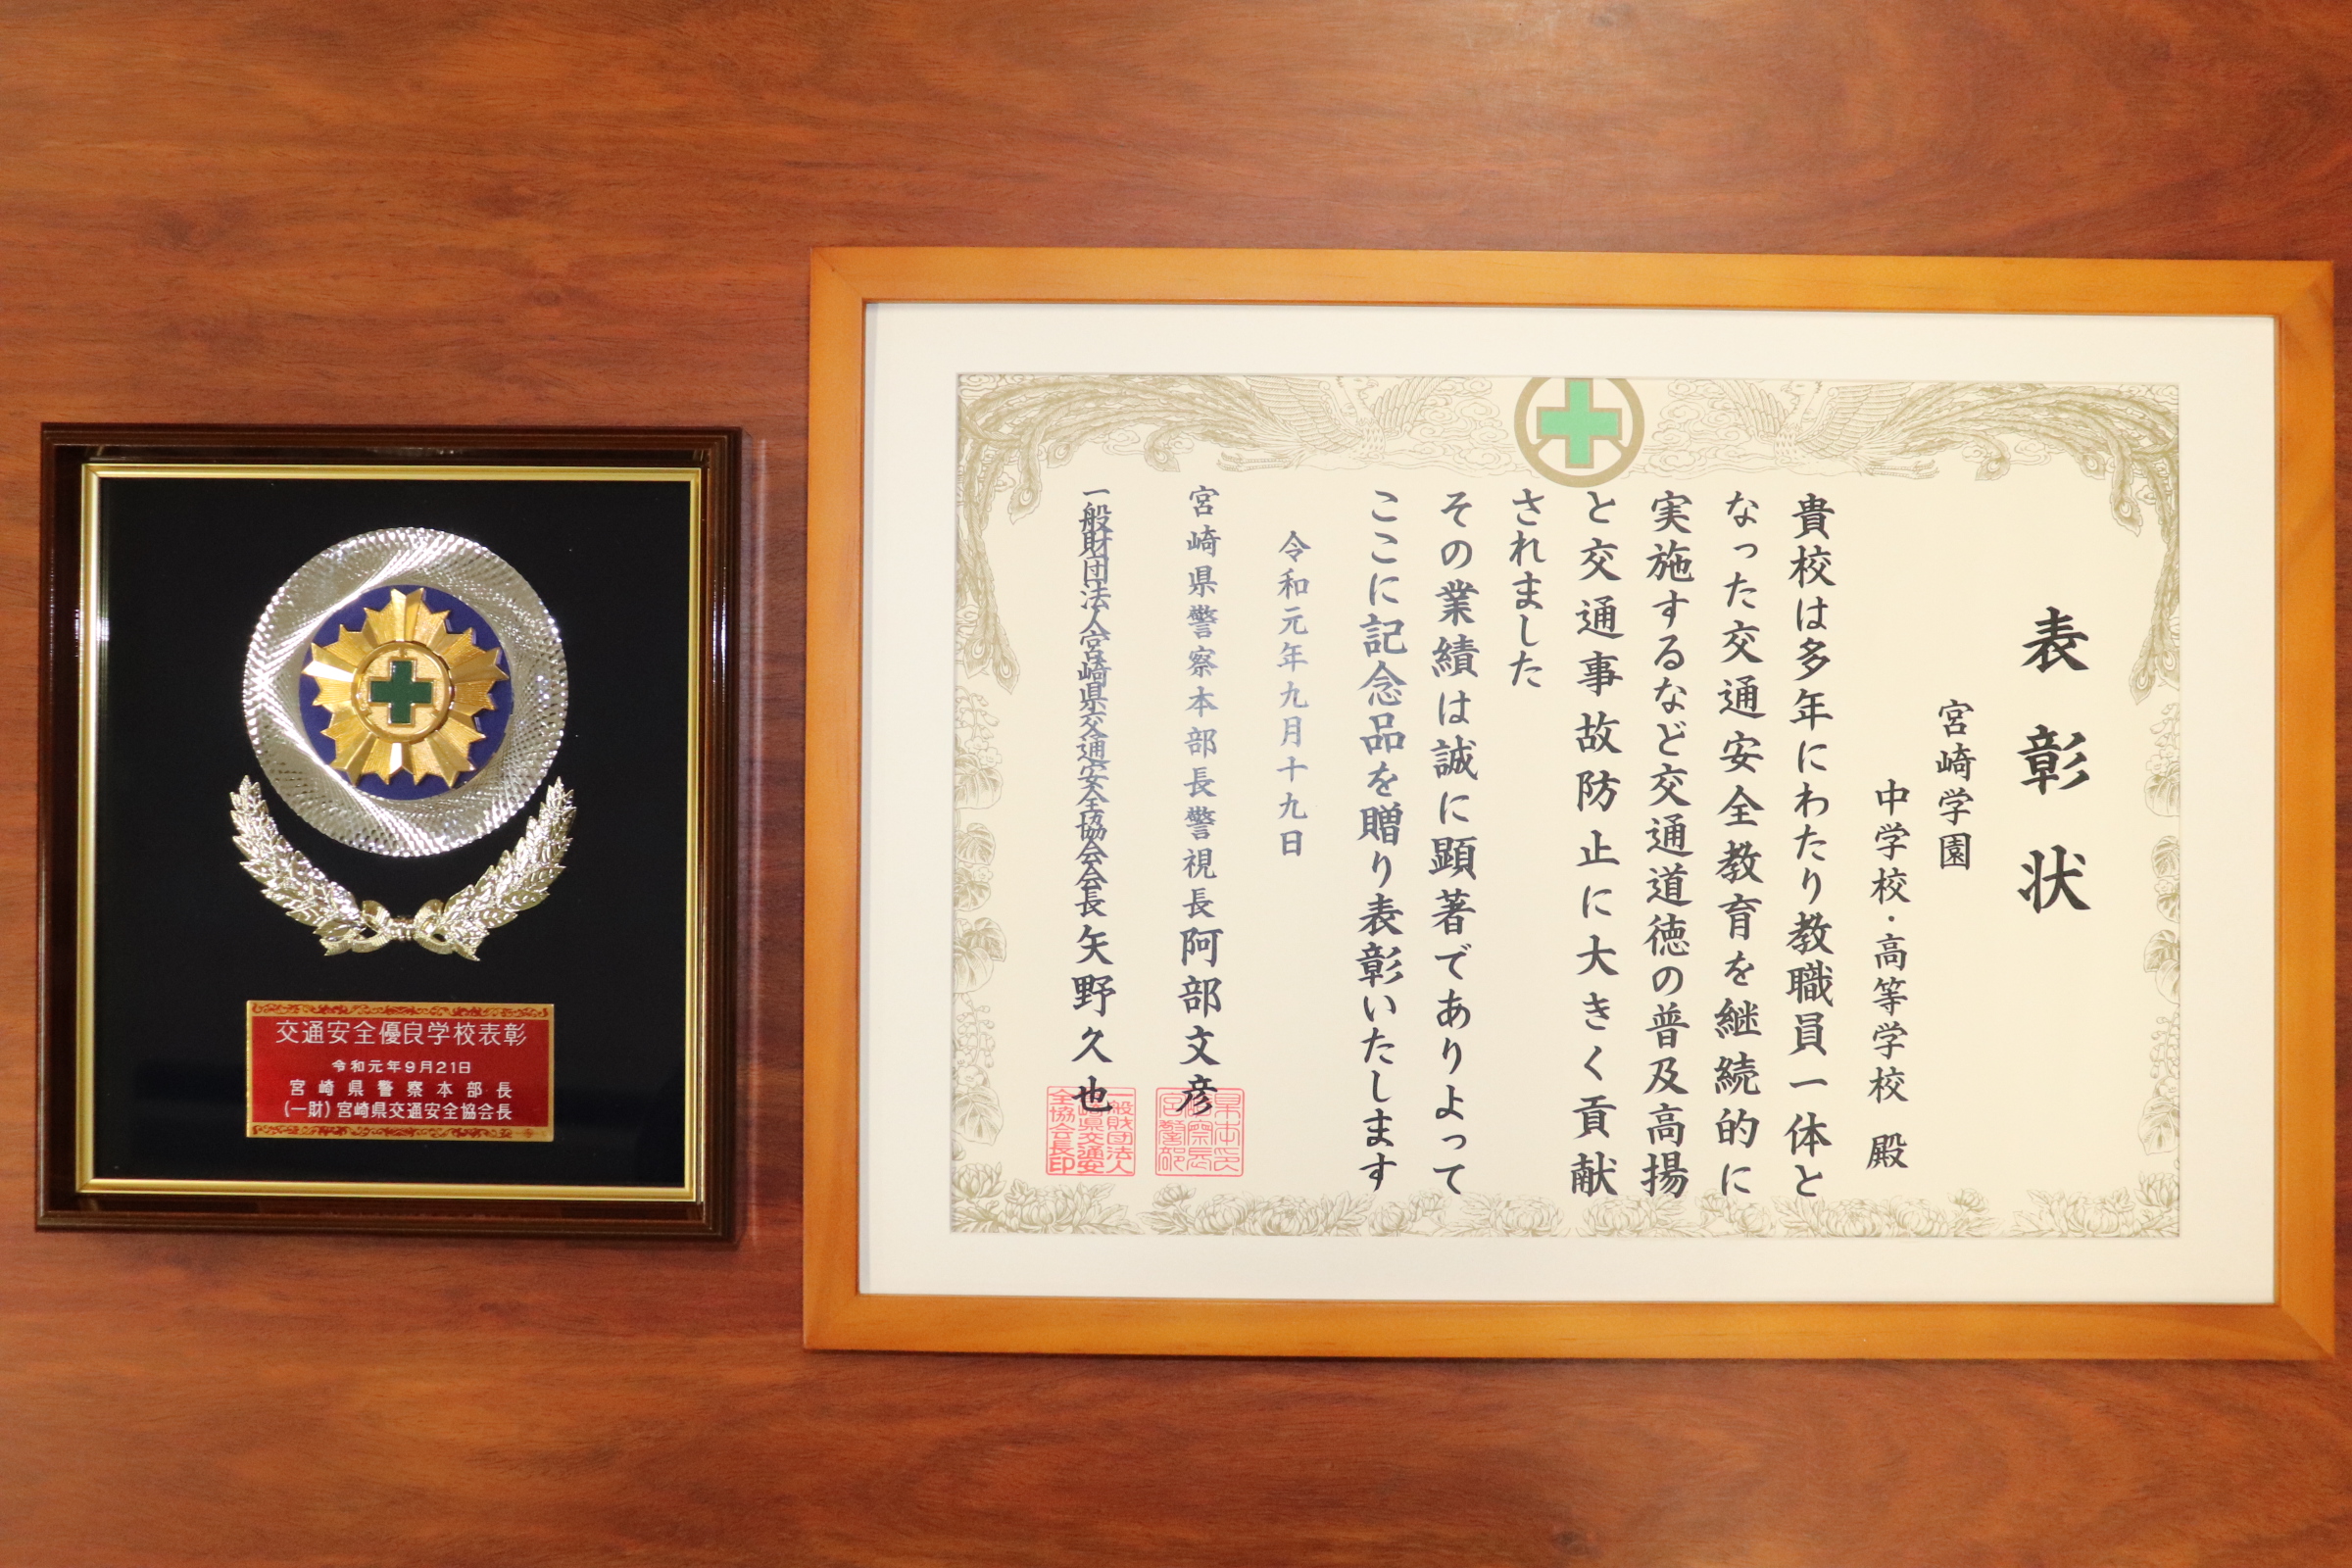 表彰状
宮崎学園
中学校・高等学校 殿
貴校は多年にわたり教職員一体と
なった交通安全教育を継続的に
実施するなど交通道徳の普及高揚
と交通事故防止に大きく貢献
されました
その業績は誠に顕著でありよって
ここに記念品を贈り表彰いたします
令和元年九月十九日
宮崎県警察本部長警視長 阿部文彦
一般財団法人宮崎県交通安全協会会長 矢野久也
一般財団法人
宮崎県交通安
全協会長印
交通安全優良学校表彰
令和元年9月21日
宮崎県警察本部長
(一財)宮崎県交通安全協会長